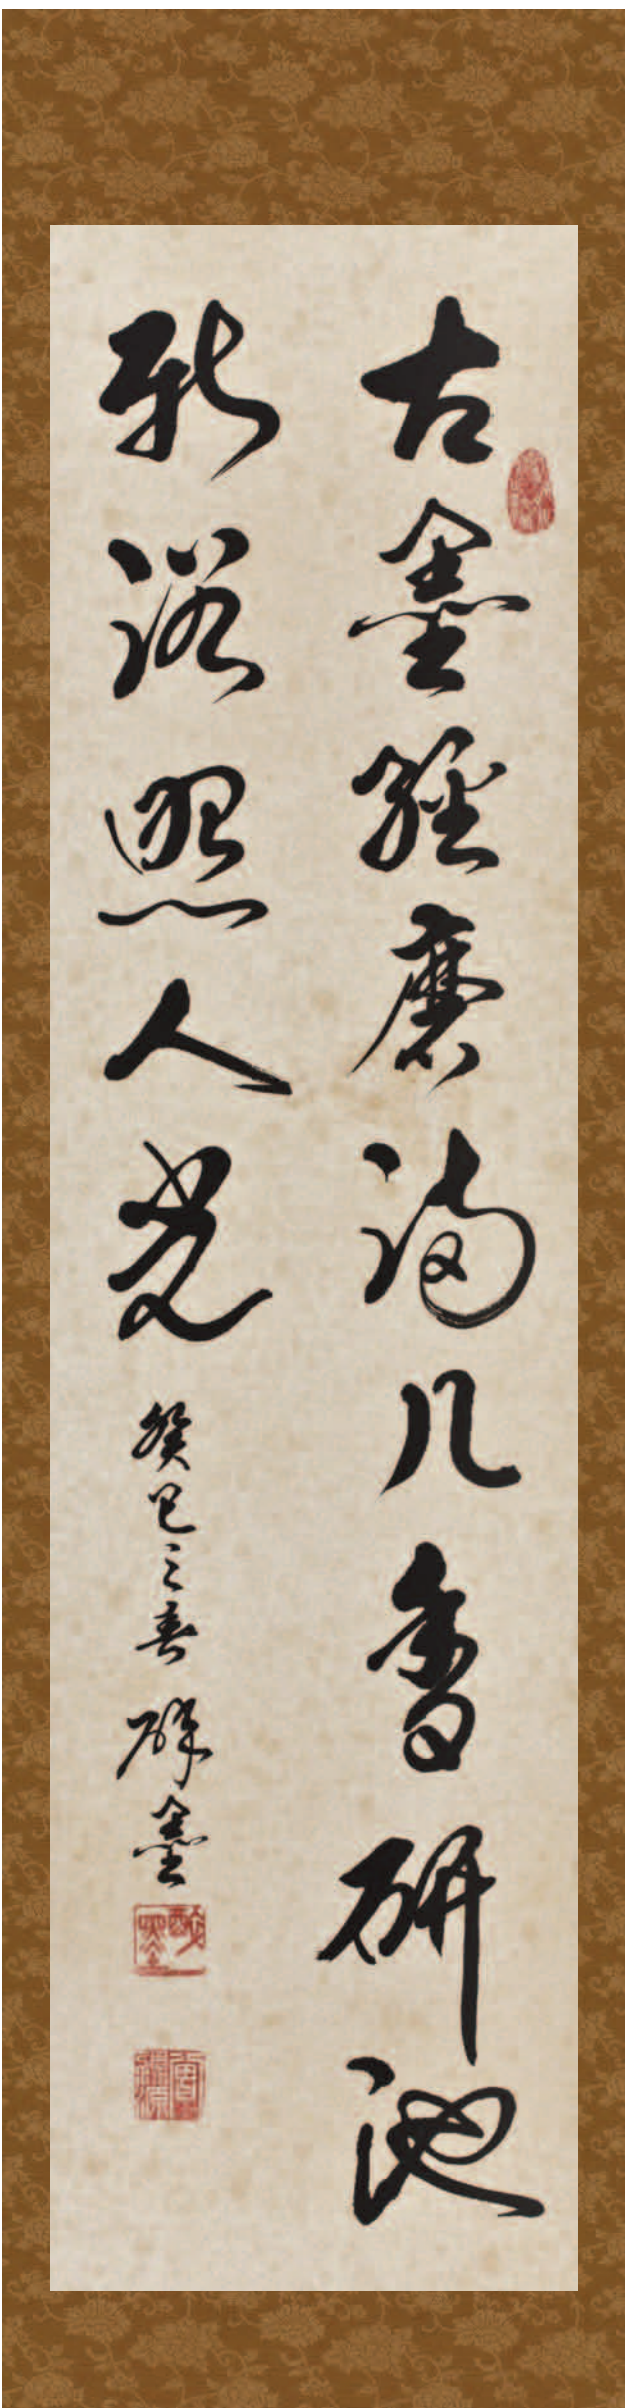 古墨輕磨滿几香研池
新浴照人光癸巳之春醉墨
醉墨